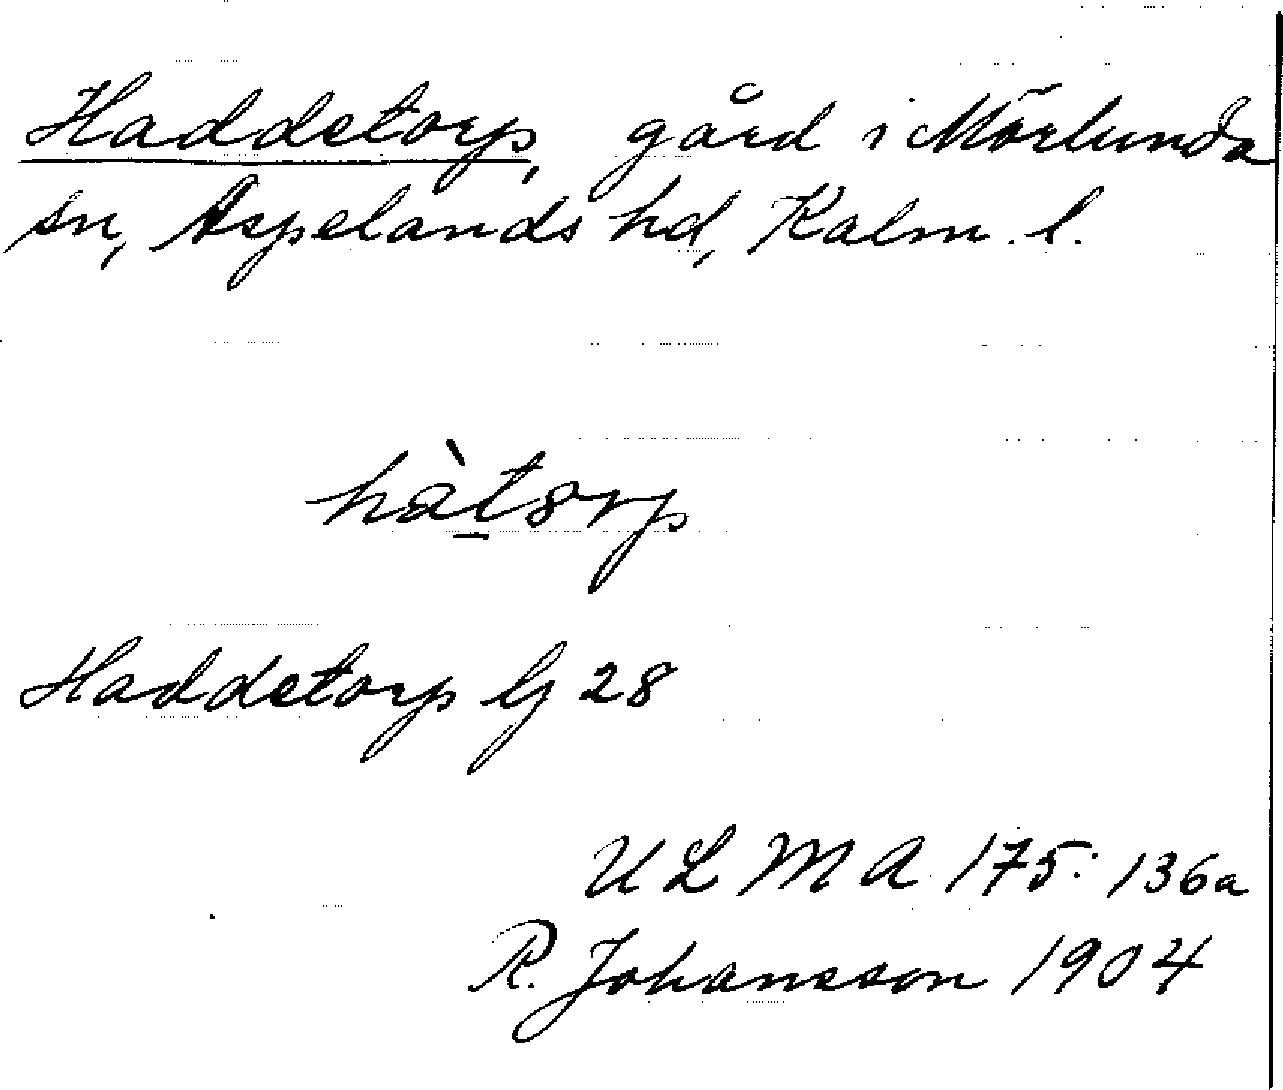 Haddetorp, gård i Mörlunda
sn, Aspelands hd, Kalm. l.
hàt̲8rp
Haddetorp G 28
ULMA 175:136a
R. Johansson 1904